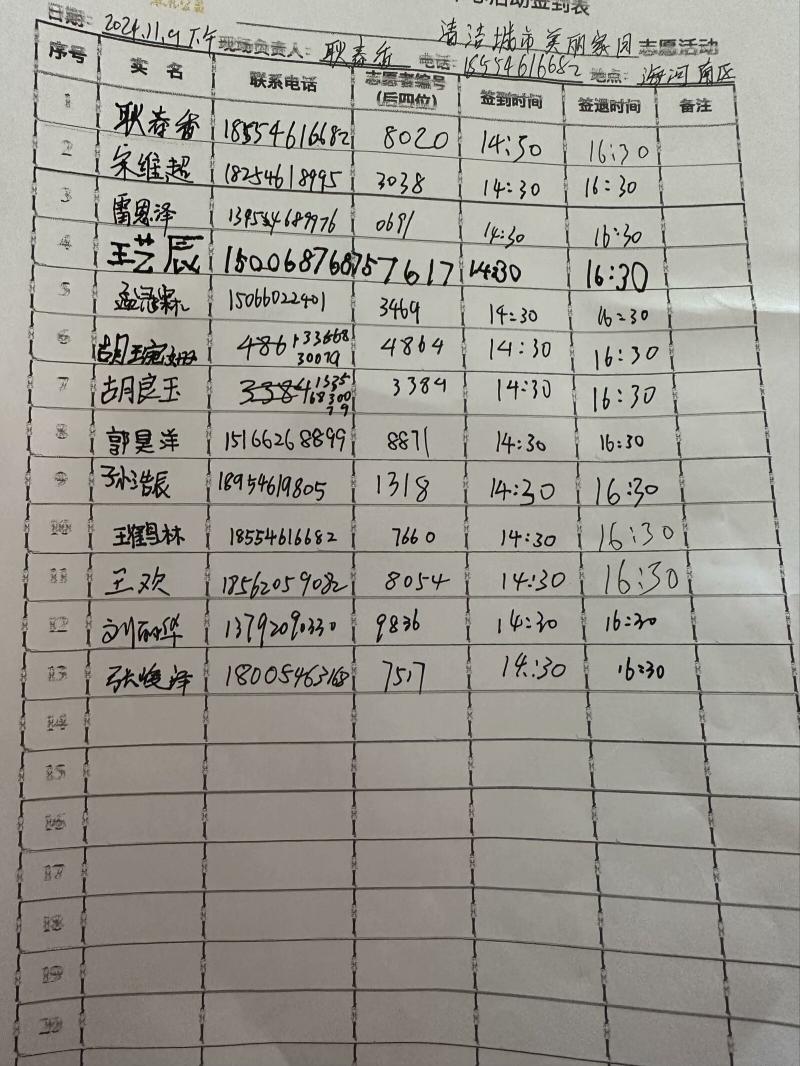 活动签到表
清洁城市美丽家园志愿活动
日期：2024.11.9 下午 现场负责人：耿春香 电话：18554616682 地点：海河南区
序号 实 名 联系电话 志愿者编号（后四位） 签到时间 签退时间 备注
1 耿春香 18554616682 8020 14:30 16:30
2 宋维超 18254618995 3038 14:30 16:30
3 雷恩泽 0691 14:30 16:30
4 王艺辰 15006876875 7617 14:30 16:30
5 15066022401 3469 14:30 16:30
6 13366830079 4864 14:30 16:30
7 胡良玉 3384 14:30 16:30
8 郭昊洋 15166268899 8871 14:30 16:30
9 孙浩辰 18954619805 1318 14:30 16:30
10 18554616682 7660 14:30 16:30
11 王欢 18562059082 8054 14:30 16:30
12 刘丽华 13792090330 9836 14:30 16:30
13 18005463168 7517 14:30 16:30
14
15
16
17
18
19
20